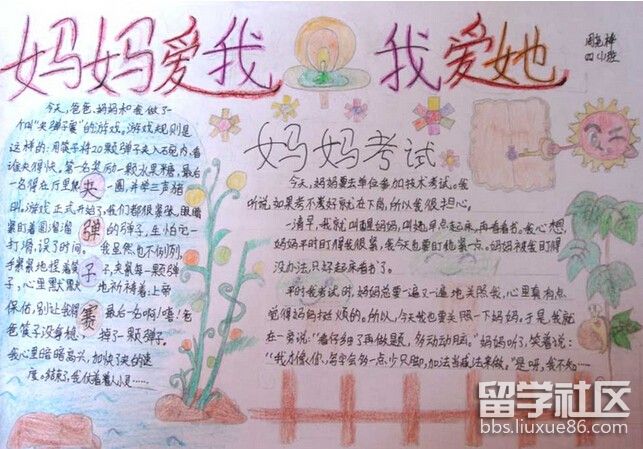 妈妈爱我 我爱她
四小燕
今天,爸爸、妈妈和我做了一
个叫“夹弹子赛”的游戏。游戏规则是
这样的:用筷子将20颗弹子夹入石碗内,看
谁夹得快。第一名奖励一颗水果糖,最后
一名得在厅里爬一圈,并学三声猪
叫。游戏正式开始了,我们都很紧张,眼睛
紧盯着圆溜溜的弹子,生怕它一
打滑,误了时间。我虽然也不例外,
手紧紧地捏着筷子,夹紧每一颗弹
子,心里默默地祈祷着:上帝
保佑,别让我得最后一名啊!嘻!爸
爸筷子没身稳,掉了一颗弹子。
我心里暗暗高兴,加快了夹的速
度。结束了,我伏着着人小见……
夹弹子赛
妈妈考试
今天,妈妈要去单位参加技术考试。我
听说,如果考不好就在下岗,所以我很担心。
一清早,我就叫醒妈妈,叫她早点起床,再看看书。我心想,
妈妈平时盯得我很紧,我今天也要盯她紧一点。妈妈被我盯得
没办法,只好起床看书了。
平时我考试时,妈妈总要一遍又一遍地关照我,心里真有点
觉得妈妈挺烦的。所以,今天我也要关照一下妈妈。于是,我就
在一旁说:“看仔细了再做题,多动动脑。”妈妈听了,笑着说:
“我才像你,写字会多一点少只脚,加法当减法来做。”是呀,我不知……
留学社区
bbs.liuxue86.com